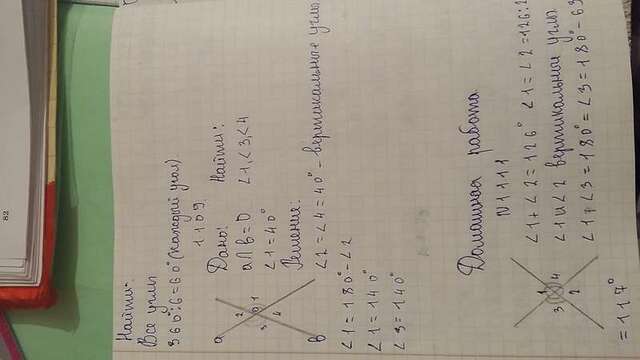 82
Найти:
Все углы
360°:6=60° (каждый угол).
1109.
a
b
2
0
1
3
4
Дано:
a∩b=O
∠1=40°
Найти:
∠1,∠3,∠4
Решение:
∠2=∠4=40° - вертикальные углы
∠1=180°-∠2
∠1=140°
∠3=140°
Домашная работа
N1111
1
3
4
2
∠1+∠2=126° ∠1=∠2=126:2
∠1 и ∠2 вертикальные углы
∠1+∠3=180°=∠3=180°-63
=117°